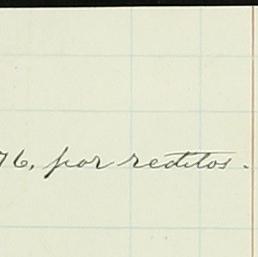 76, por reditos.